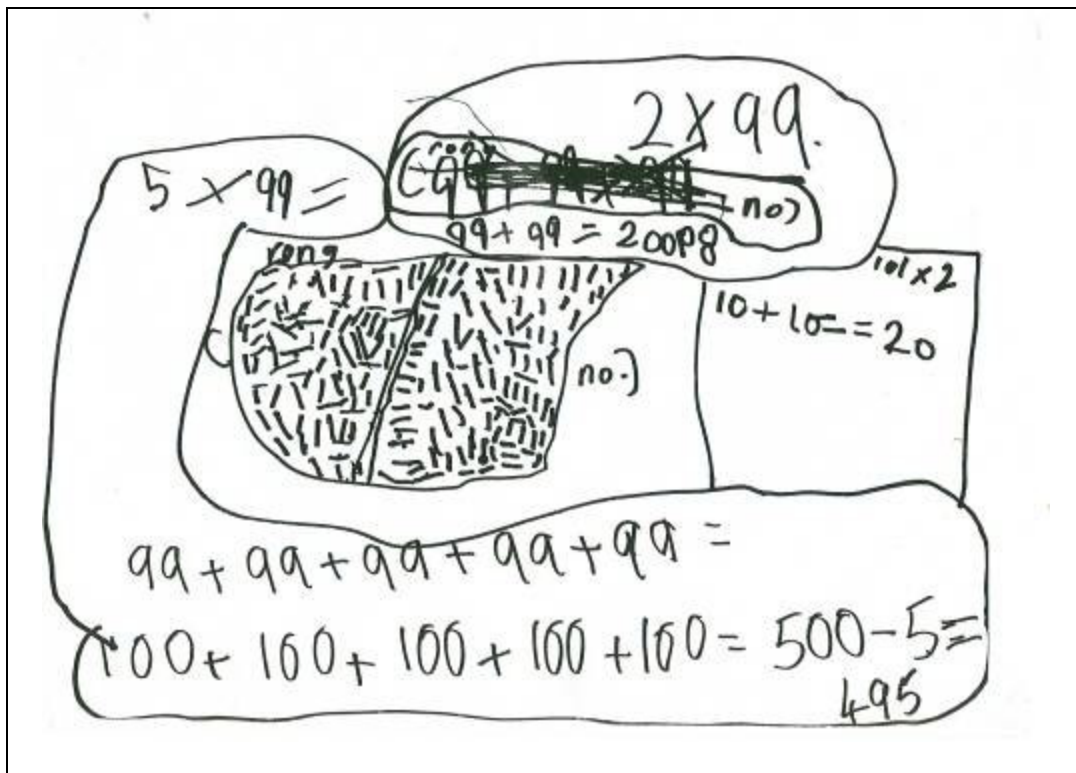 2 x 99.
5 x 99 =
no)
99 + 99 = 200p8
rong
101 x 2
10 + 10 = = 20
no.)
99 + 99 + 99 + 99 + 99 =
100 + 100 + 100 + 100 + 100 = 500 - 5 =
495